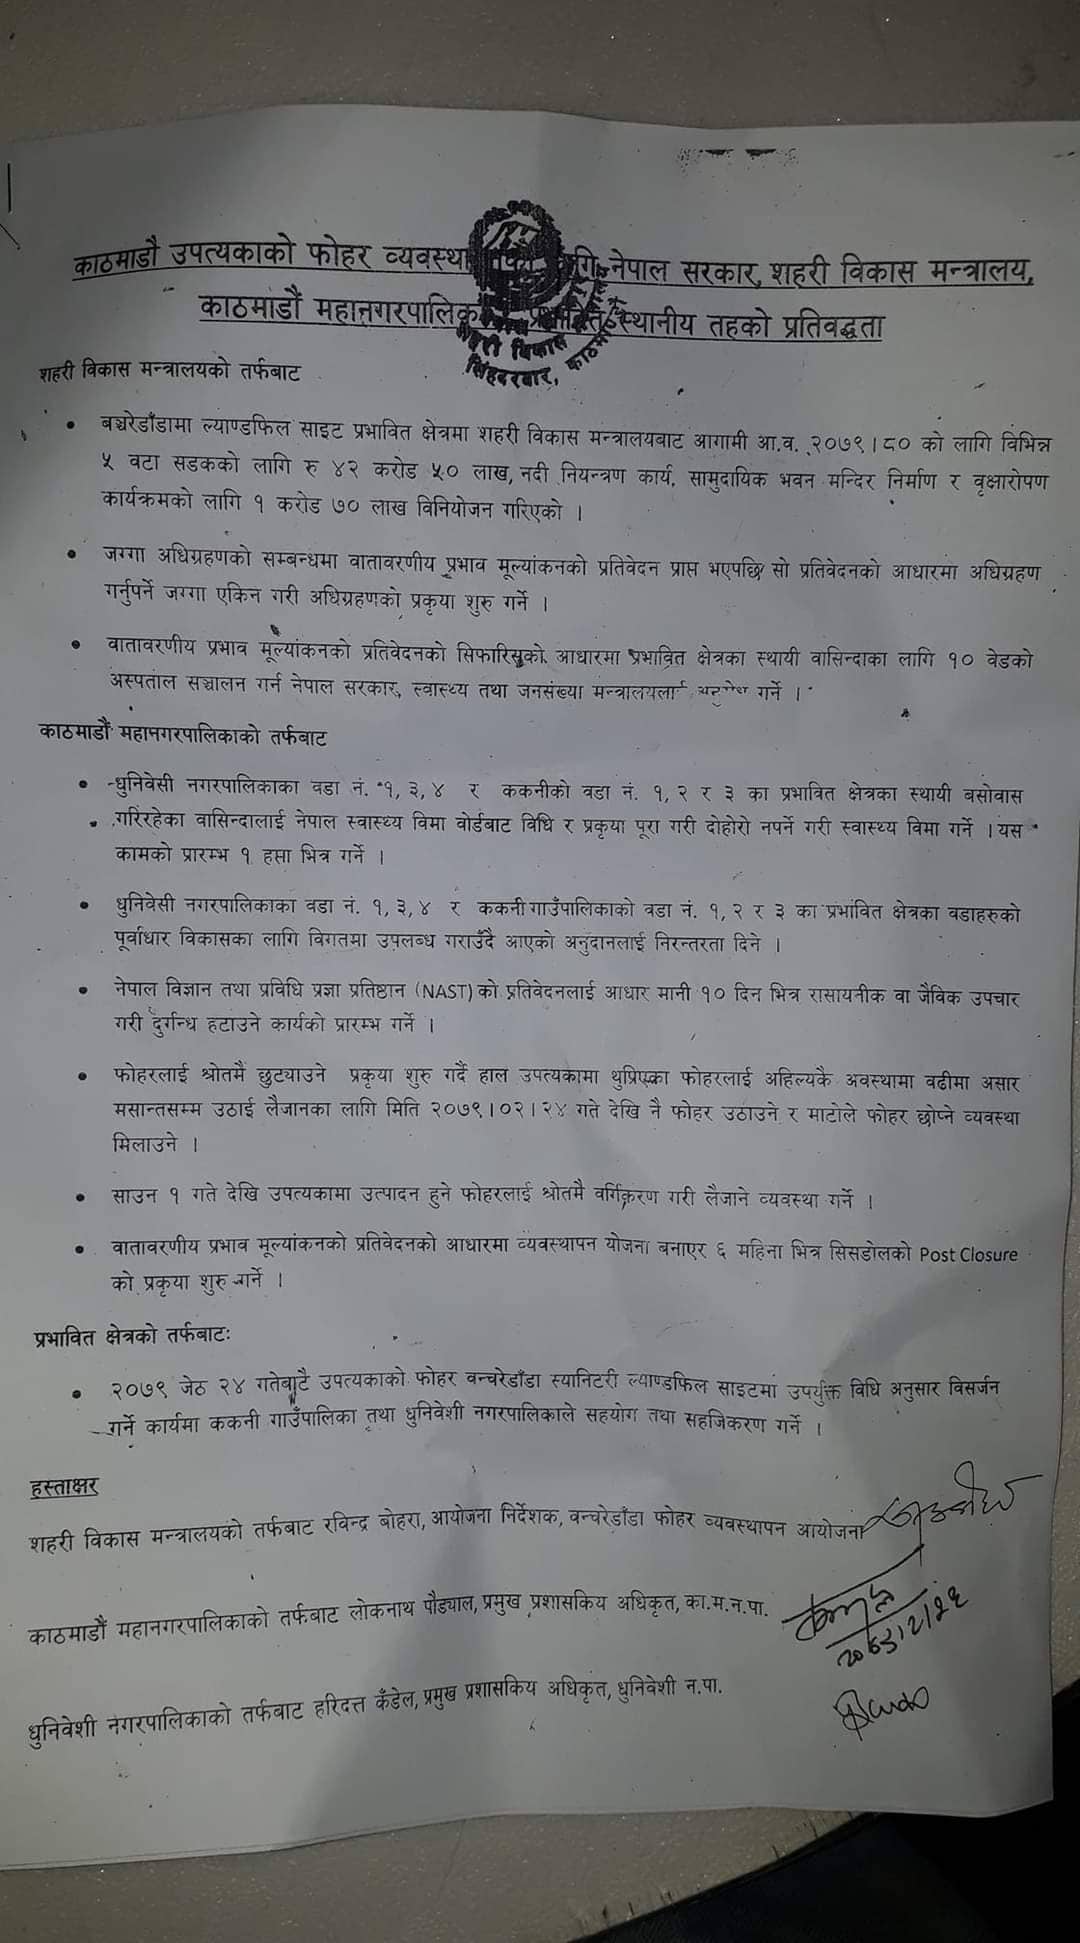 काठमाडौ उपत्यकाको फोहर व्यवस्था नेपाल सरकार, शहरी विकास मन्त्रालय,
काठमाडौं महानगरपालिका प्रभावित स्थानीय तहको प्रतिवद्धता
शहरी विकास
सिंहदरबार, काठमा
शहरी विकास मन्त्रालयको तर्फबाट
• बञ्चरेडाँडामा ल्याण्डफिल साइट प्रभावित क्षेत्रमा शहरी विकास मन्त्रालयबाट आगामी आ.व. २०७९।८० को लागि विभिन्न
५ वटा सडकको लागि रु ४२ करोड ५० लाख, नदी नियन्त्रण कार्य, सामुदायिक भवन मन्दिर निर्माण र वृक्षारोपण
कार्यक्रमको लागि १ करोड ७० लाख विनियोजन गरिएको ।
• जग्गा अधिग्रहणको सम्बन्धमा वातावरणीय प्रभाव मूल्यांकनको प्रतिवेदन प्राप्त भएपछि सो प्रतिवेदनको आधारमा अधिग्रहण
गर्नुपर्ने जग्गा एकिन गरी अधिग्रहणको प्रकृया शुरु गर्ने ।
• वातावरणीय प्रभाव मूल्यांकनको प्रतिवेदनको सिफारिसको आधारमा प्रभावित क्षेत्रका स्थायी वासिन्दाका लागि १० वेडको
अस्पताल सञ्चालन गर्न नेपाल सरकार, स्वास्थ्य तथा जनसंख्या मन्त्रालयलाई गर्ने ।
काठमाडौं महानगरपालिकाको तर्फबाट
• धुनिवेसी नगरपालिकाका वडा नं. १, ३, ४ र ककनीको वडा नं. १, २ र ३ का प्रभावित क्षेत्रका स्थायी बसोवास
गरिरहेका वासिन्दालाई नेपाल स्वास्थ्य विमा वोर्डबाट विधि र प्रकृया पूरा गरी दोहोरो नपर्ने गरी स्वास्थ्य विमा गर्ने । यस
कामको प्रारम्भ १ हप्ता भित्र गर्ने ।
• धुनिवेसी नगरपालिकाका वडा नं. १, ३, ४ र ककनी गाउँपालिकाको वडा नं. १, २ र ३ का प्रभावित क्षेत्रका वडाहरुको
पूर्वाधार विकासका लागि विगतमा उपलब्ध गराउँदै आएको अनुदानलाई निरन्तरता दिने ।
• नेपाल विज्ञान तथा प्रविधि प्रज्ञा प्रतिष्ठान (NAST) को प्रतिवेदनलाई आधार मानी १० दिन भित्र रासायनीक वा जैविक उपचार
गरी दुर्गन्ध हटाउने कार्यको प्रारम्भ गर्ने ।
• फोहरलाई श्रोतमै छुट्याउने प्रकृया शुरु गर्दै हाल उपत्यकामा थुप्रिएका फोहरलाई अहिल्यकै अवस्थामा वढीमा असार
मसान्तसम्म उठाई लैजानका लागि मिति २०७९।०२।२४ गते देखि नै फोहर उठाउने र माटोले फोहर छोप्ने व्यवस्था
मिलाउने ।
• साउन १ गते देखि उपत्यकामा उत्पादन हुने फोहरलाई श्रोतमै वर्गिकरण गरी लैजाने व्यवस्था गर्ने ।
• वातावरणीय प्रभाव मूल्यांकनको प्रतिवेदनको आधारमा व्यवस्थापन योजना बनाएर ६ महिना भित्र सिसडोलको Post Closure
को प्रकृया शुरु गर्ने ।
प्रभावित क्षेत्रको तर्फबाटः
• २०७९ जेठ २४ गतेबाटै उपत्यकाको फोहर वन्चरेडाँडा स्यानिटरी ल्याण्डफिल साइटमा उपर्युक्त विधि अनुसार विसर्जन
गर्ने कार्यमा ककनी गाउँपालिका तथा धुनिवेशी नगरपालिकाले सहयोग तथा सहजिकरण गर्ने ।
हस्ताक्षर
शहरी विकास मन्त्रालयको तर्फबाट रविन्द्र बोहरा, आयोजना निर्देशक, वन्चरेडाँडा फोहर व्यवस्थापन आयोजना
काठमाडौं महानगरपालिकाको तर्फबाट लोकनाथ पौड्याल, प्रमुख प्रशासकिय अधिकृत, का.म.न.पा.
धुनिवेशी नगरपालिकाको तर्फबाट हरिदत्त कँडेल, प्रमुख प्रशासकिय अधिकृत, धुनिवेशी न.पा.